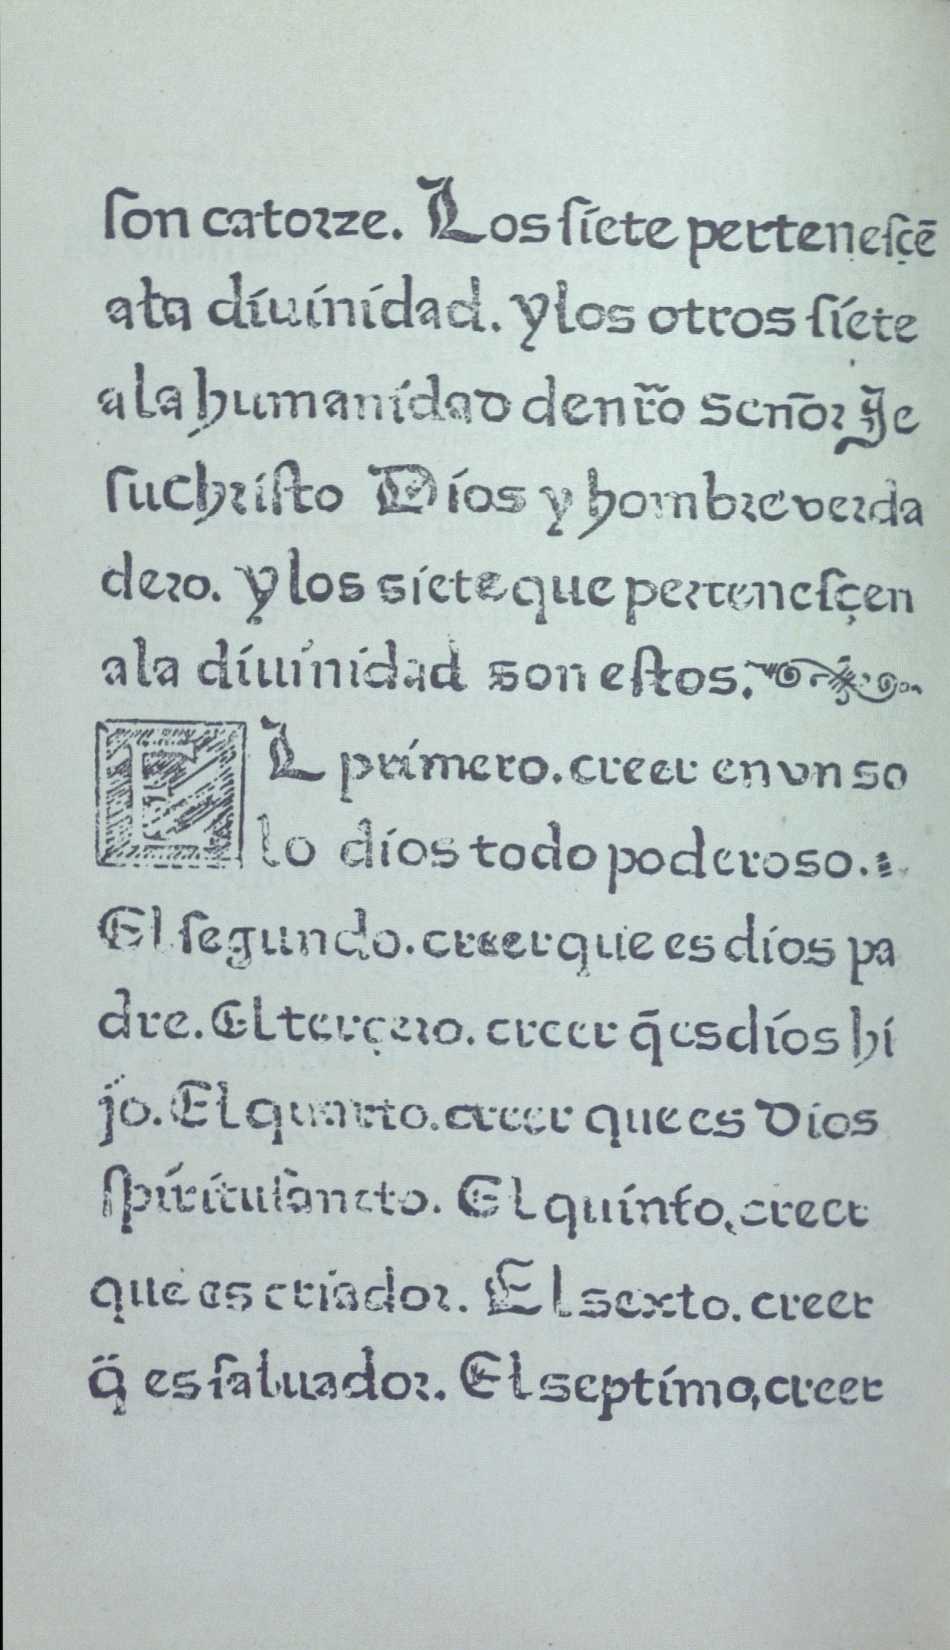 ſon catorze. Los ſiete perteneſçē
ala diuinidad. y los otros ſiete
ala humanidad de nr̃o señor Je
ſuchriſto Dios y hombre verda
dero. y los siete que perteneſçen
ala diuinidad son eſtos.
EL primero. creer en vn so
lo dios todo poderoso.
El ſegundo. creer que es dios pa
dre. El terçero. creer q̃ es dios hi
jo. El quarto. creer que es Dios
ſpírituſancto. El quinto, creer
que es criador. El sexto. creer
q̃ es ſaluador. El septimo, creer